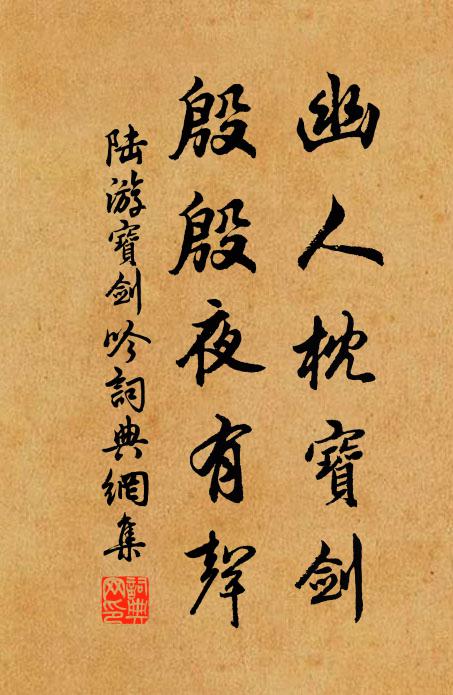 幽人枕寶劍
殷殷夜有聲
陸游寶劍吟詞典網集
詞典
网印